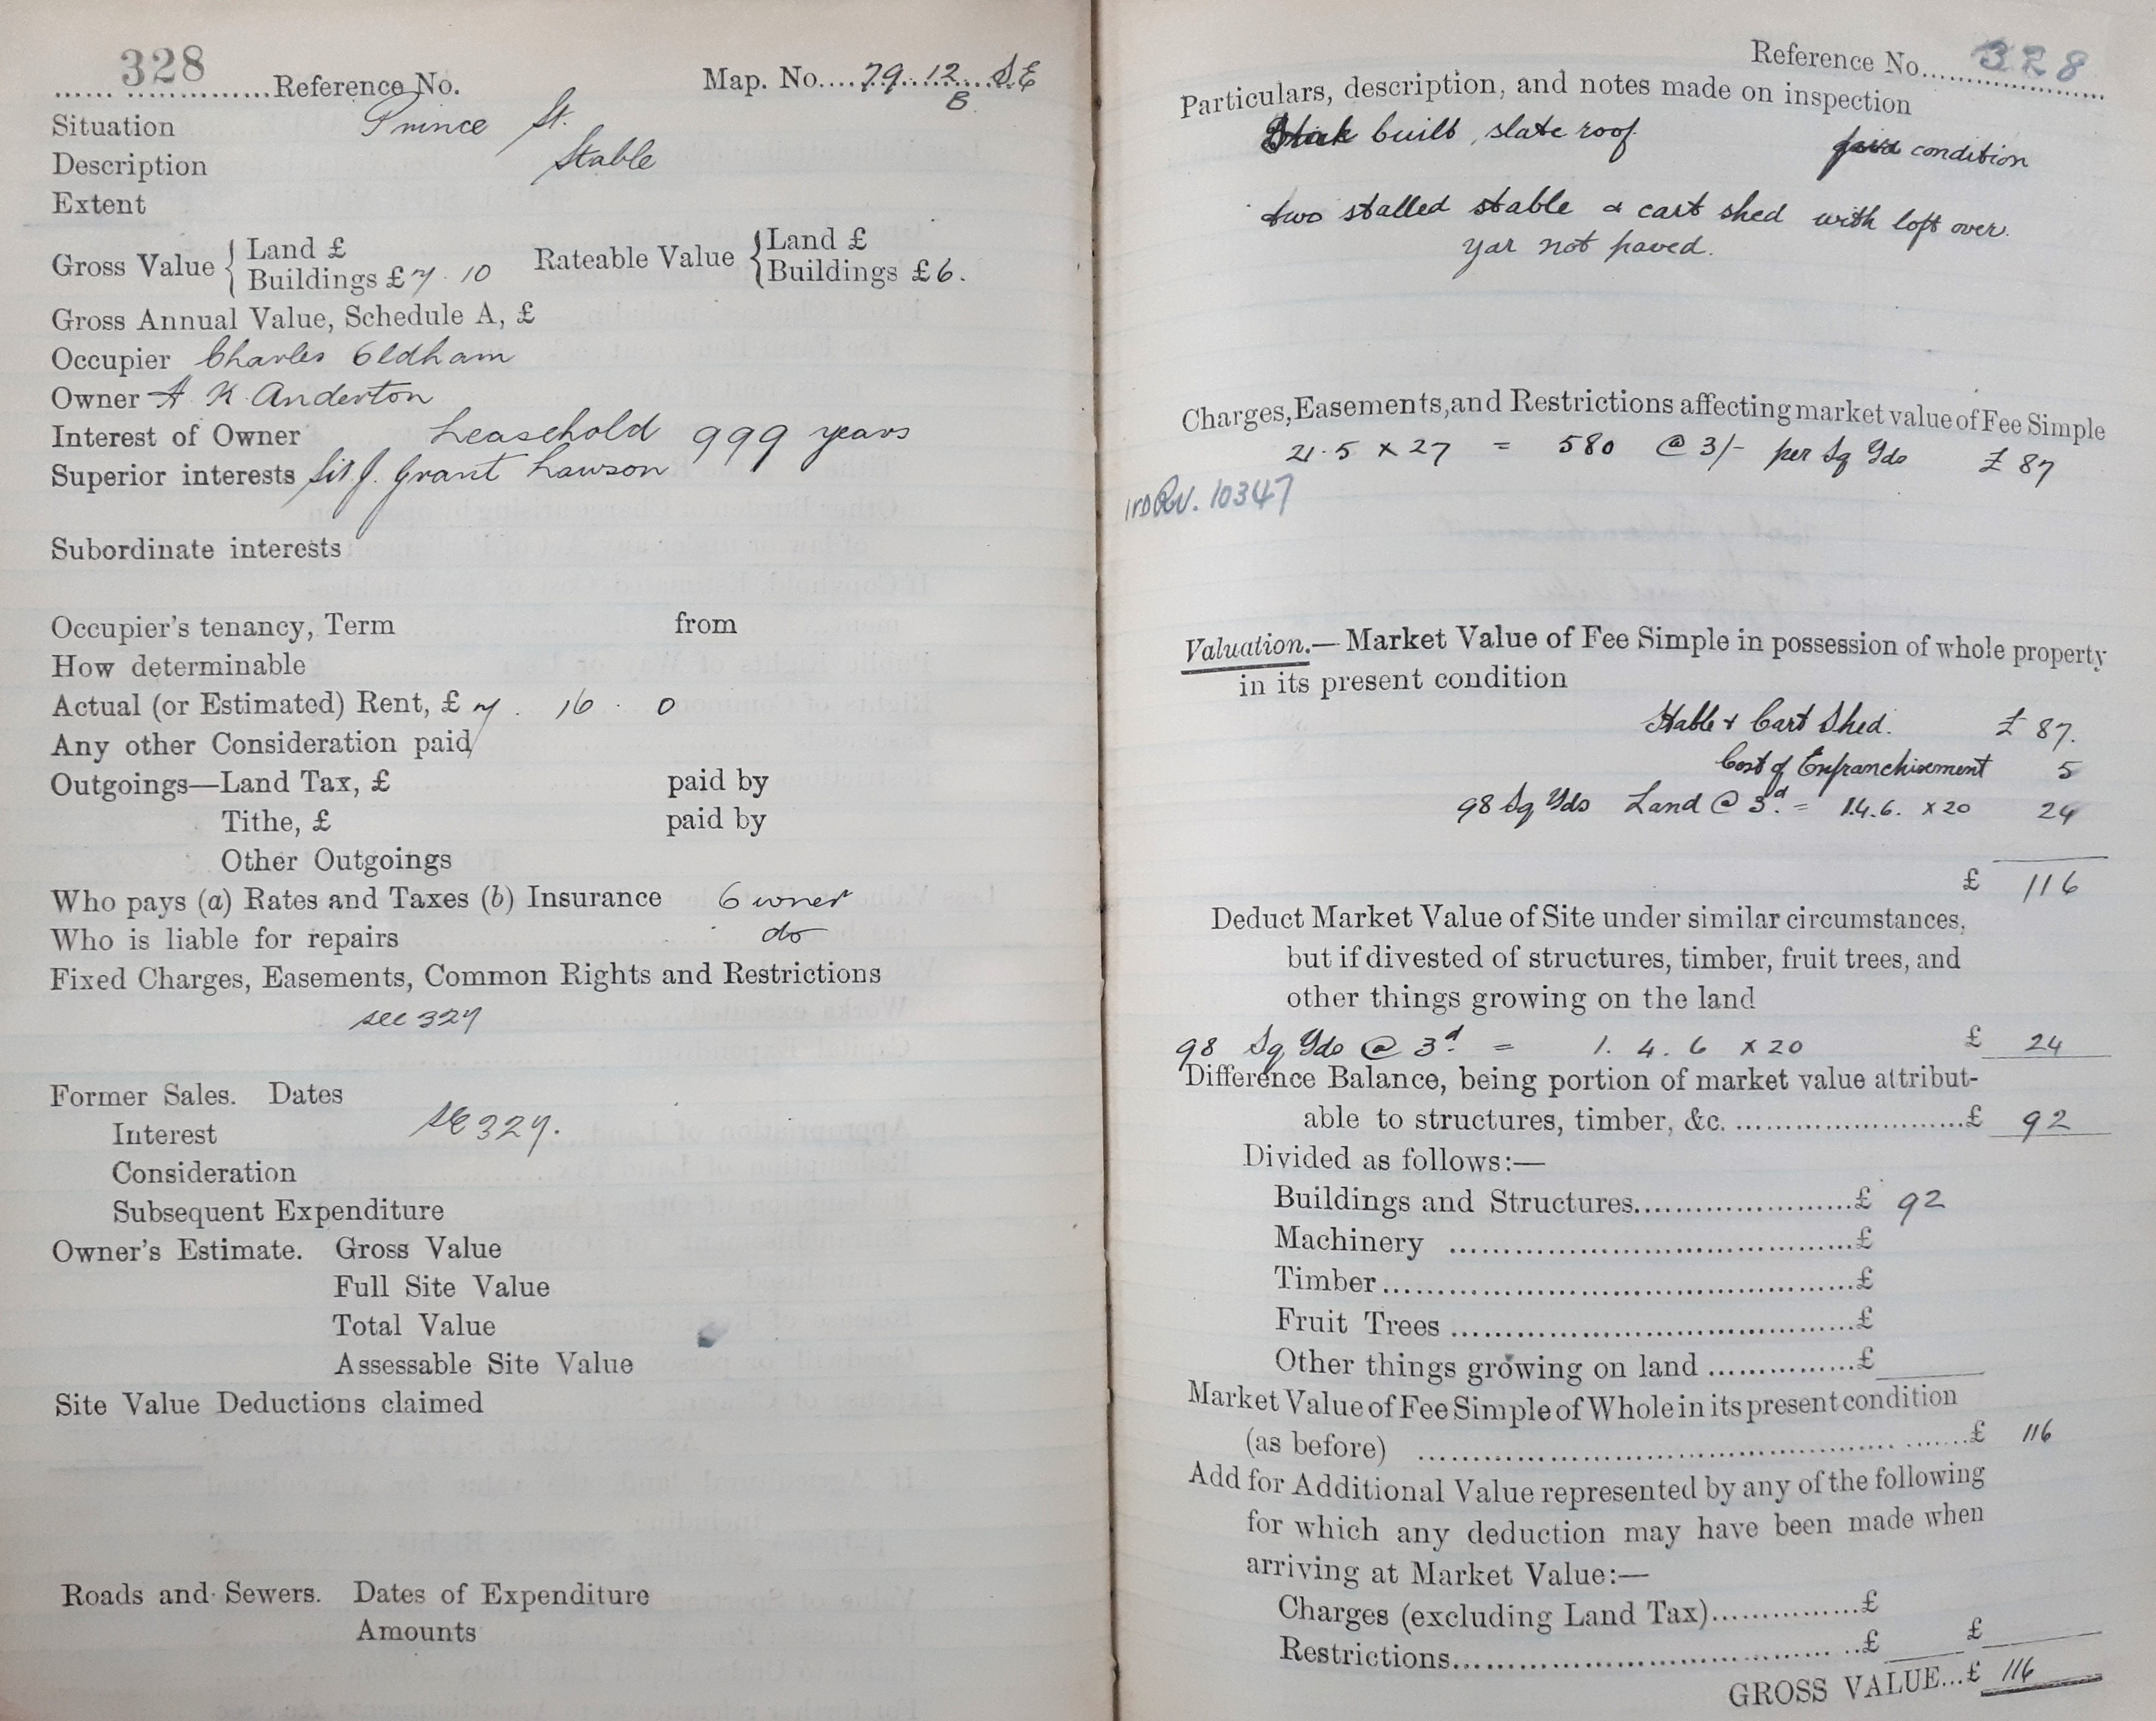 328
Reference No.
Map. No. 79. 12. S.E
B.
Situation Prince St.
Description Stable
Extent
Gross Value { Land £
Buildings £ 7. 10
Rateable Value { Land £
Buildings £ 6.
Gross Annual Value, Schedule A, £
Occupier Charles Oldham
Owner A K Anderton
Interest of Owner Leasehold 999 years
Superior interests Sir J. Grant Lawson
Subordinate interests
Occupier's tenancy, Term from
How determinable
Actual (or Estimated) Rent, £ 7. 16. 0
Any other Consideration paid
Outgoings—Land Tax, £ paid by
Tithe, £ paid by
Other Outgoings
Who pays (a) Rates and Taxes (b) Insurance Owner
Who is liable for repairs do
Fixed Charges, Easements, Common Rights and Restrictions
see 327
Former Sales. Dates
Interest see 327.
Consideration
Subsequent Expenditure
Owner's Estimate. Gross Value
Full Site Value
Total Value
Assessable Site Value
Site Value Deductions claimed
Roads and Sewers. Dates of Expenditure
Amounts
Reference No. 328
Particulars, description, and notes made on inspection
built, slate roof condition
two stalled stable & cart shed with loft over.
yar not paved.
Charges, Easements, and Restrictions affecting market value of Fee Simple
21.5 x 27 = 580 @ 3/- per Sq Yds £ 87
10347
Valuation.— Market Value of Fee Simple in possession of whole property
in its present condition
Stable & Cart Shed. £ 87.
Cost of Enfranchisement 5
98 Sq Yds Land @ 3d. = 1.4.6. x 20 24
£ 116
Deduct Market Value of Site under similar circumstances,
but if divested of structures, timber, fruit trees, and
other things growing on the land
98 Sq Yds @ 3d. = 1. 4. 6 x 20 £ 24
Difference Balance, being portion of market value attribut-
able to structures, timber, &c. £ 92
Divided as follows:—
Buildings and Structures £ 92
Machinery £
Timber £
Fruit Trees £
Other things growing on land £
Market Value of Fee Simple of Whole in its present condition
(as before) £ 116
Add for Additional Value represented by any of the following
for which any deduction may have been made when
arriving at Market Value:—
Charges (excluding Land Tax) £
Restrictions £ £
GROSS VALUE...£ 116